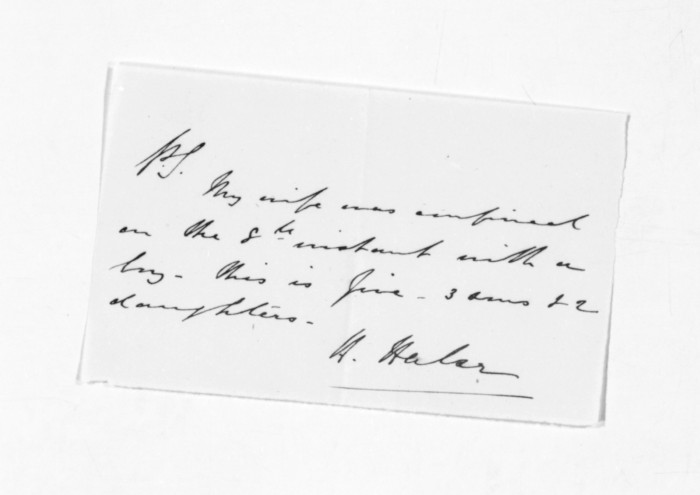 P.S. My wife was confined
on the 8th instant with a
boy - this is five - 3 sons & 2
daughters -
H. Halse